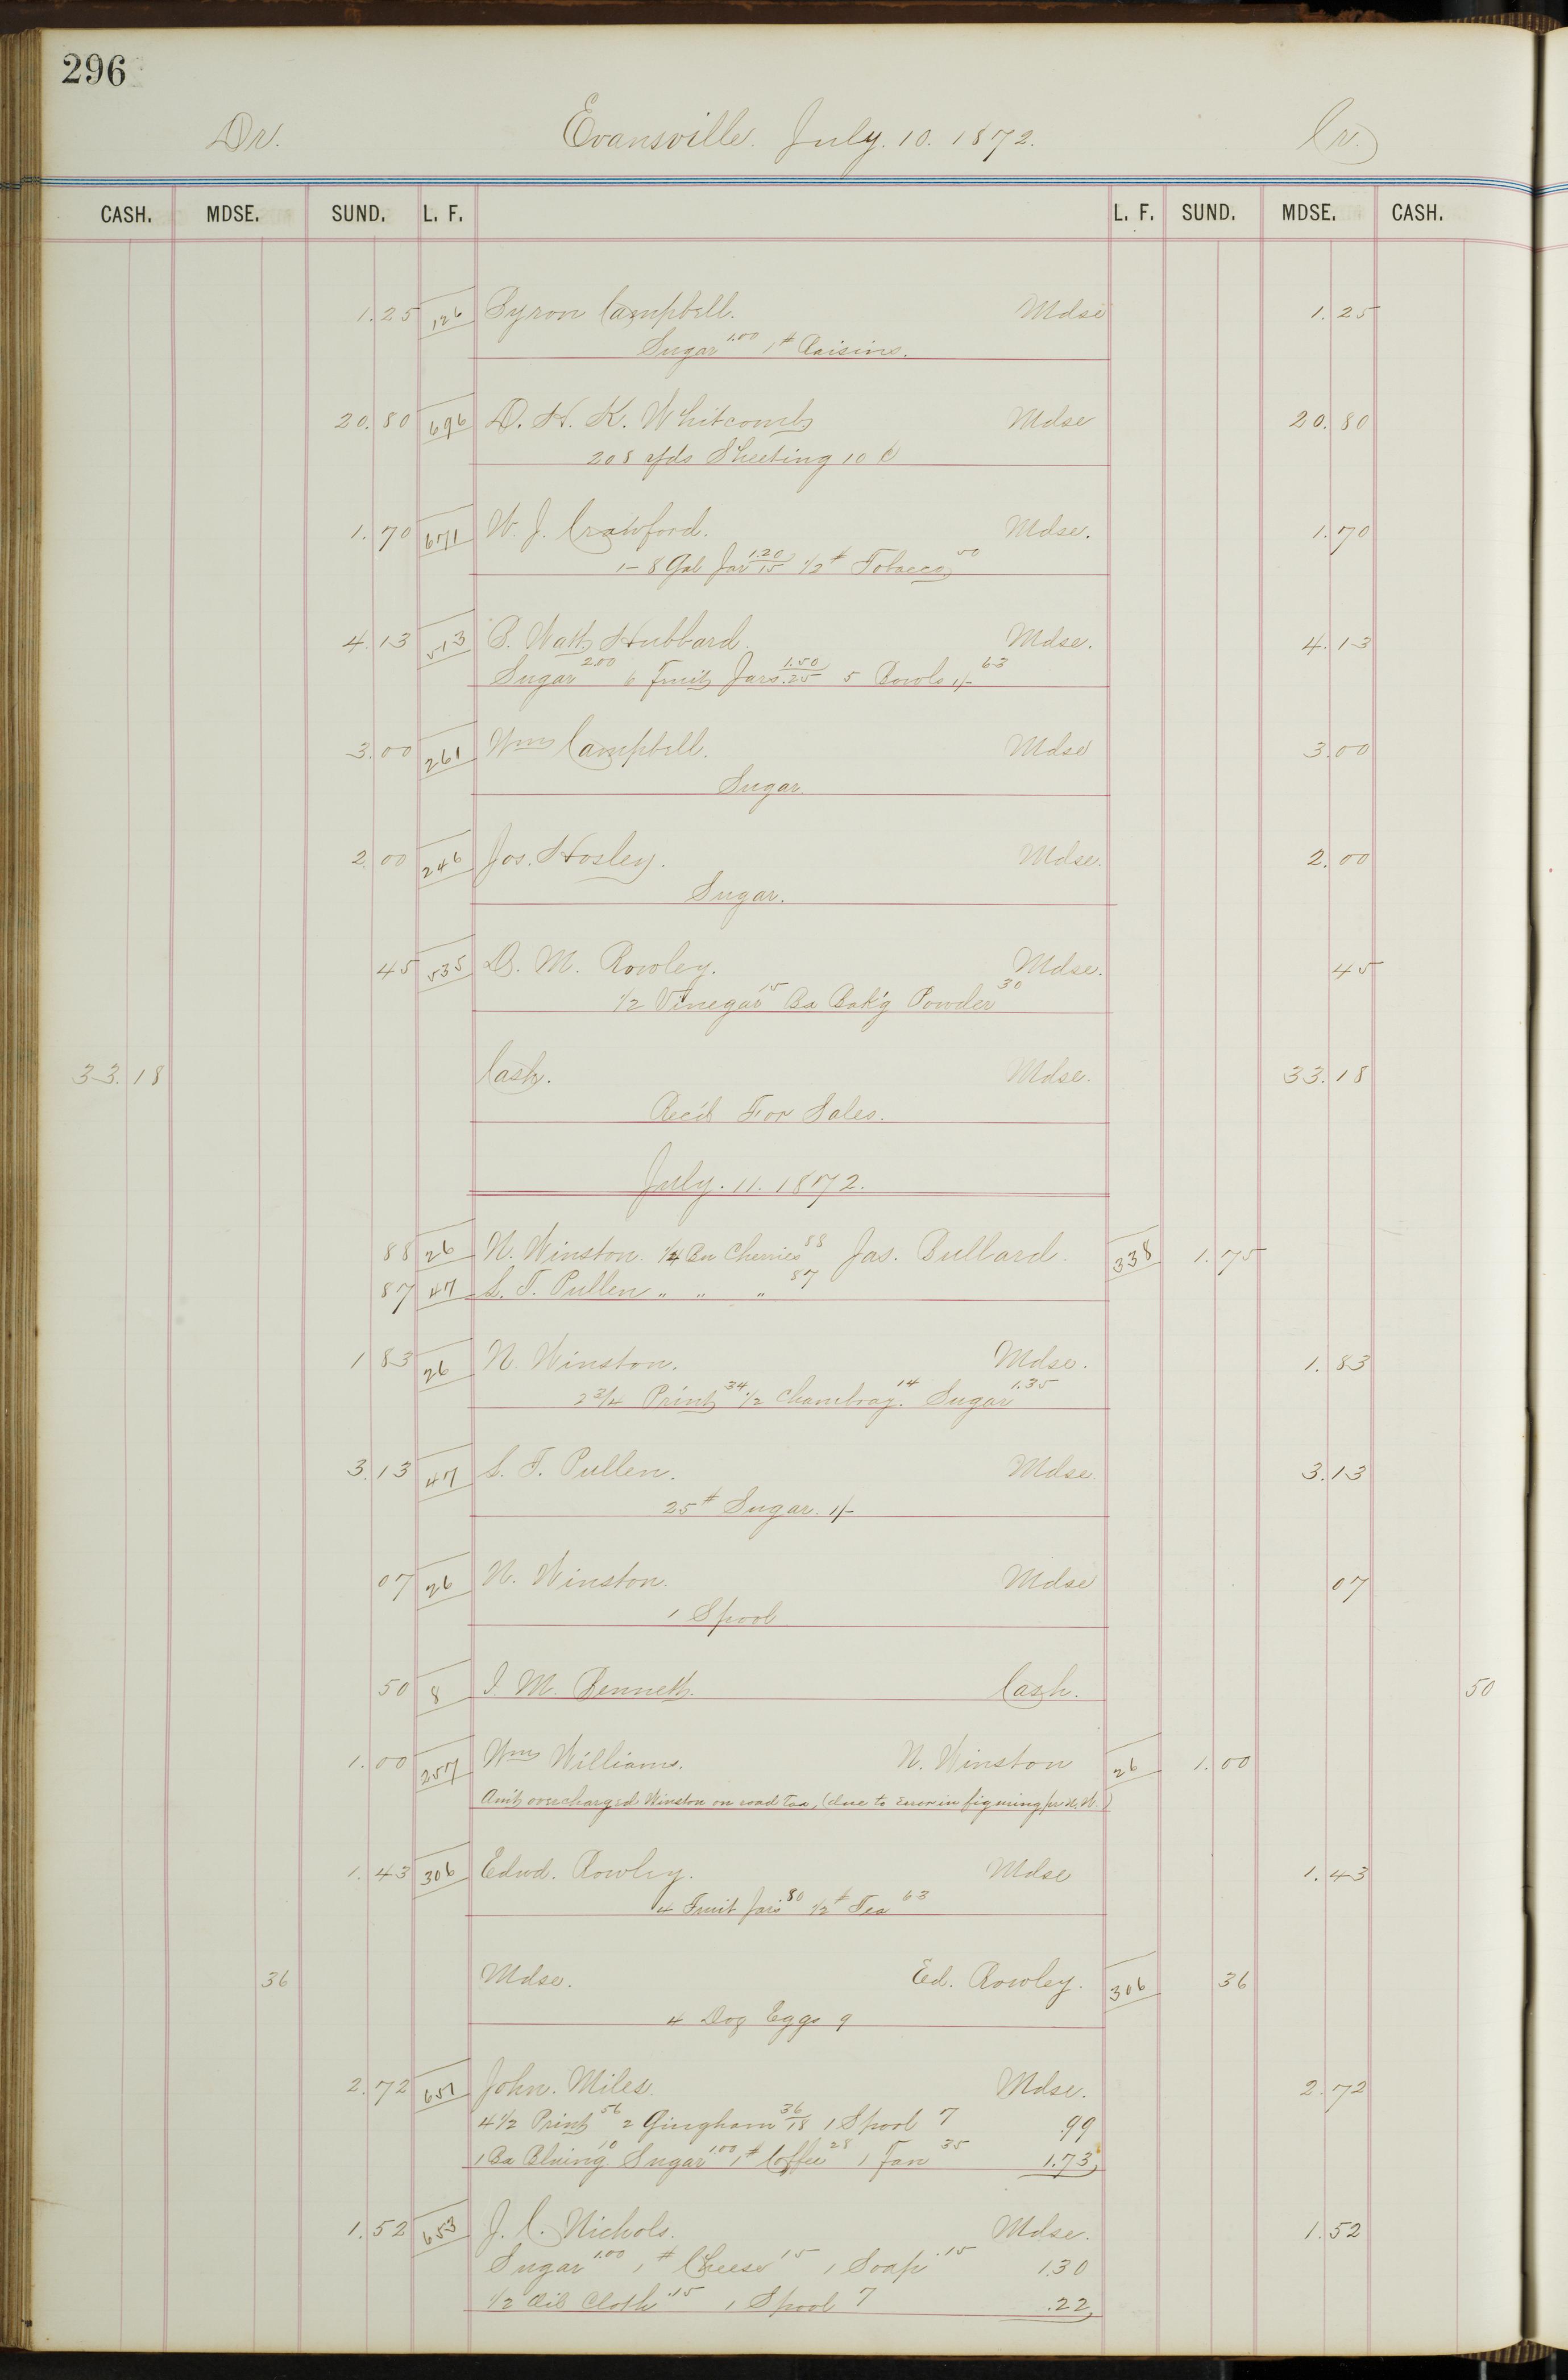 296
Dr. Evansville. July. 10. 1872. Cr.
CASH. MDSE. SUND. L. F. L. F. SUND. MDSE. CASH.
1.25 126 Byron Campbell. Mdse 1.25
Sugar 1.00 1# Raisins.
20.80 696 D. H. K. Whitcomb Mdse 20.80
208 yds Sheeting 10 c
1.70 671 W. J. Crawford. Mdse. 1.70
1- 8 Gal Jar 1.20/15 1/2# Tobacco 50
4.13 513 B. Watt Hubbard. Mdse. 4.13
Sugar 2.00 6 Fruit Jars 1.50/.25 5 Bowls 1/- 63
3.00 261 Wm Campbell. Mdse 3.00
Sugar
2.00 246 Jos. Hosley. Mdse. 2.00
Sugar.
45 535 D. M. Rowley. Mdse. 45
1/2 Vinegar 15 Bx Bak'g Powder 30
33.18 Cash. Mdse. 33.18
Rec'd For Sales.
July. 11. 1872.
88 26 N. Winston. 1/4 Bu Cherries 88 Jas. Bullard. 338 1.75
87 47 L. T. Pullen " " " 87
1 83 26 N. Winston. Mdse. 1.83
2 3/4 Print 34 1/2 Chambray. 14 Sugar 1.35
3.13 47 L. T. Pullen. Mdse. 3.13
25# Sugar. 1/-
07 26 N. Winston. Mdse 07
1 Spool
50 8 I. M. Bennett. Cash. 50
1.00 257 Wm Williams. N. Winston 26 1.00
Am't overcharged Winston on road Tax, (due to Error in figuring pr N. W.)
1.43 306 Edwd. Rowley. Mdse 1.43
4 Fruit Jars 80 1/2# Tea 63
36 Mdse. Ed. Rowley. 306 36
4 Doz Eggs 9
2.72 651 John. Miles. Mdse. 2.72
4 1/2 Print 56 2 Gingham 36/18 1 Spool 7 .99
1 Bx Bluing 10 Sugar 1.00 1# Coffee 28 1 Fan 35 1.73
1.52 653 J. C. Nichols. Mdse. 1.52
Sugar 1.00 1# Cheese 15 1 Soap .15 1.30
1/2 Oil Cloth .15 1 Spool 7 .22